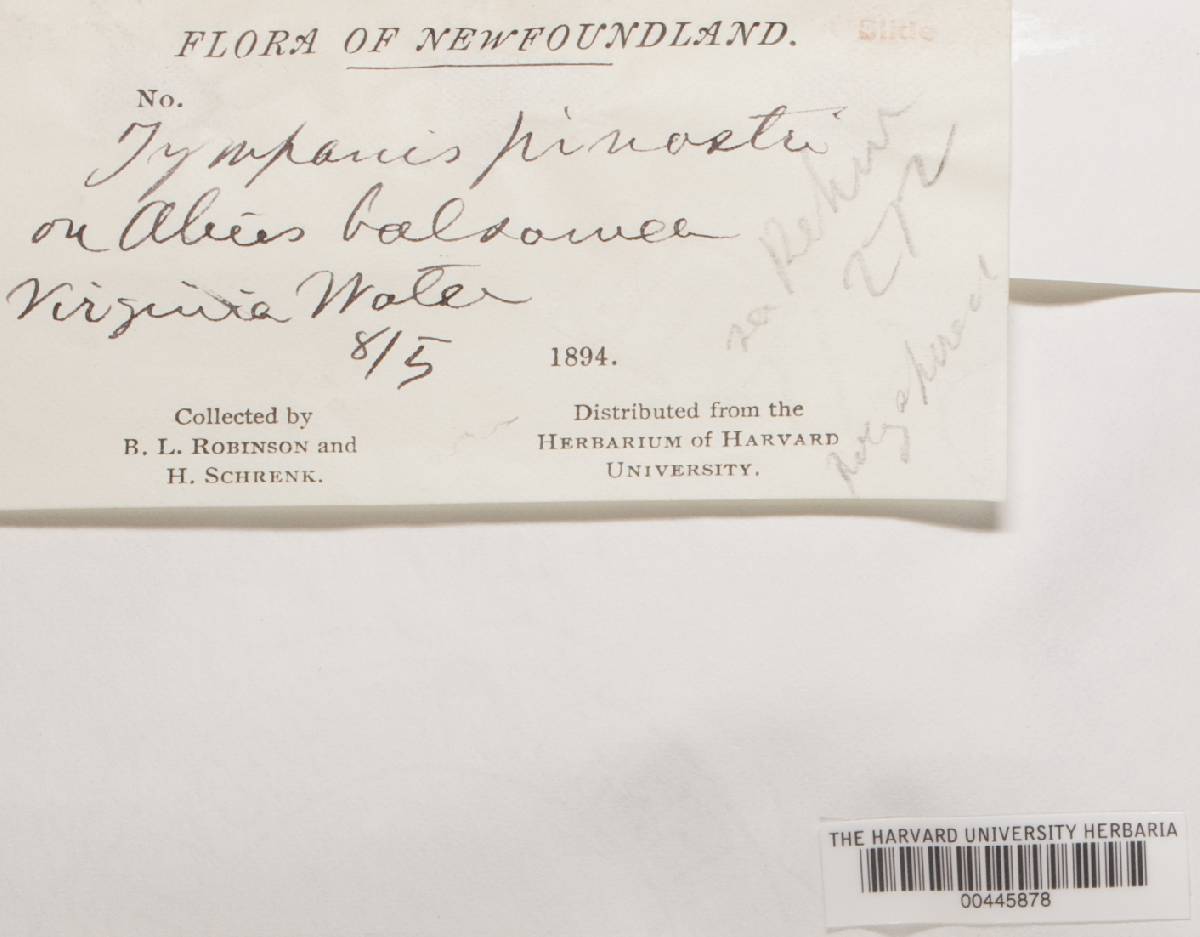 FLORA OF NEWFOUNDLAND.
Slide
No.
Tympanis pinastri
on Abies balsamea
Virginia Water
8/5 1894.
Collected by
B. L. ROBINSON and
H. SCHRENK.
Distributed from the
HERBARIUM of HARVARD
UNIVERSITY.
Rehm
272
THE HARVARD UNIVERSITY HERBARIA
00445878